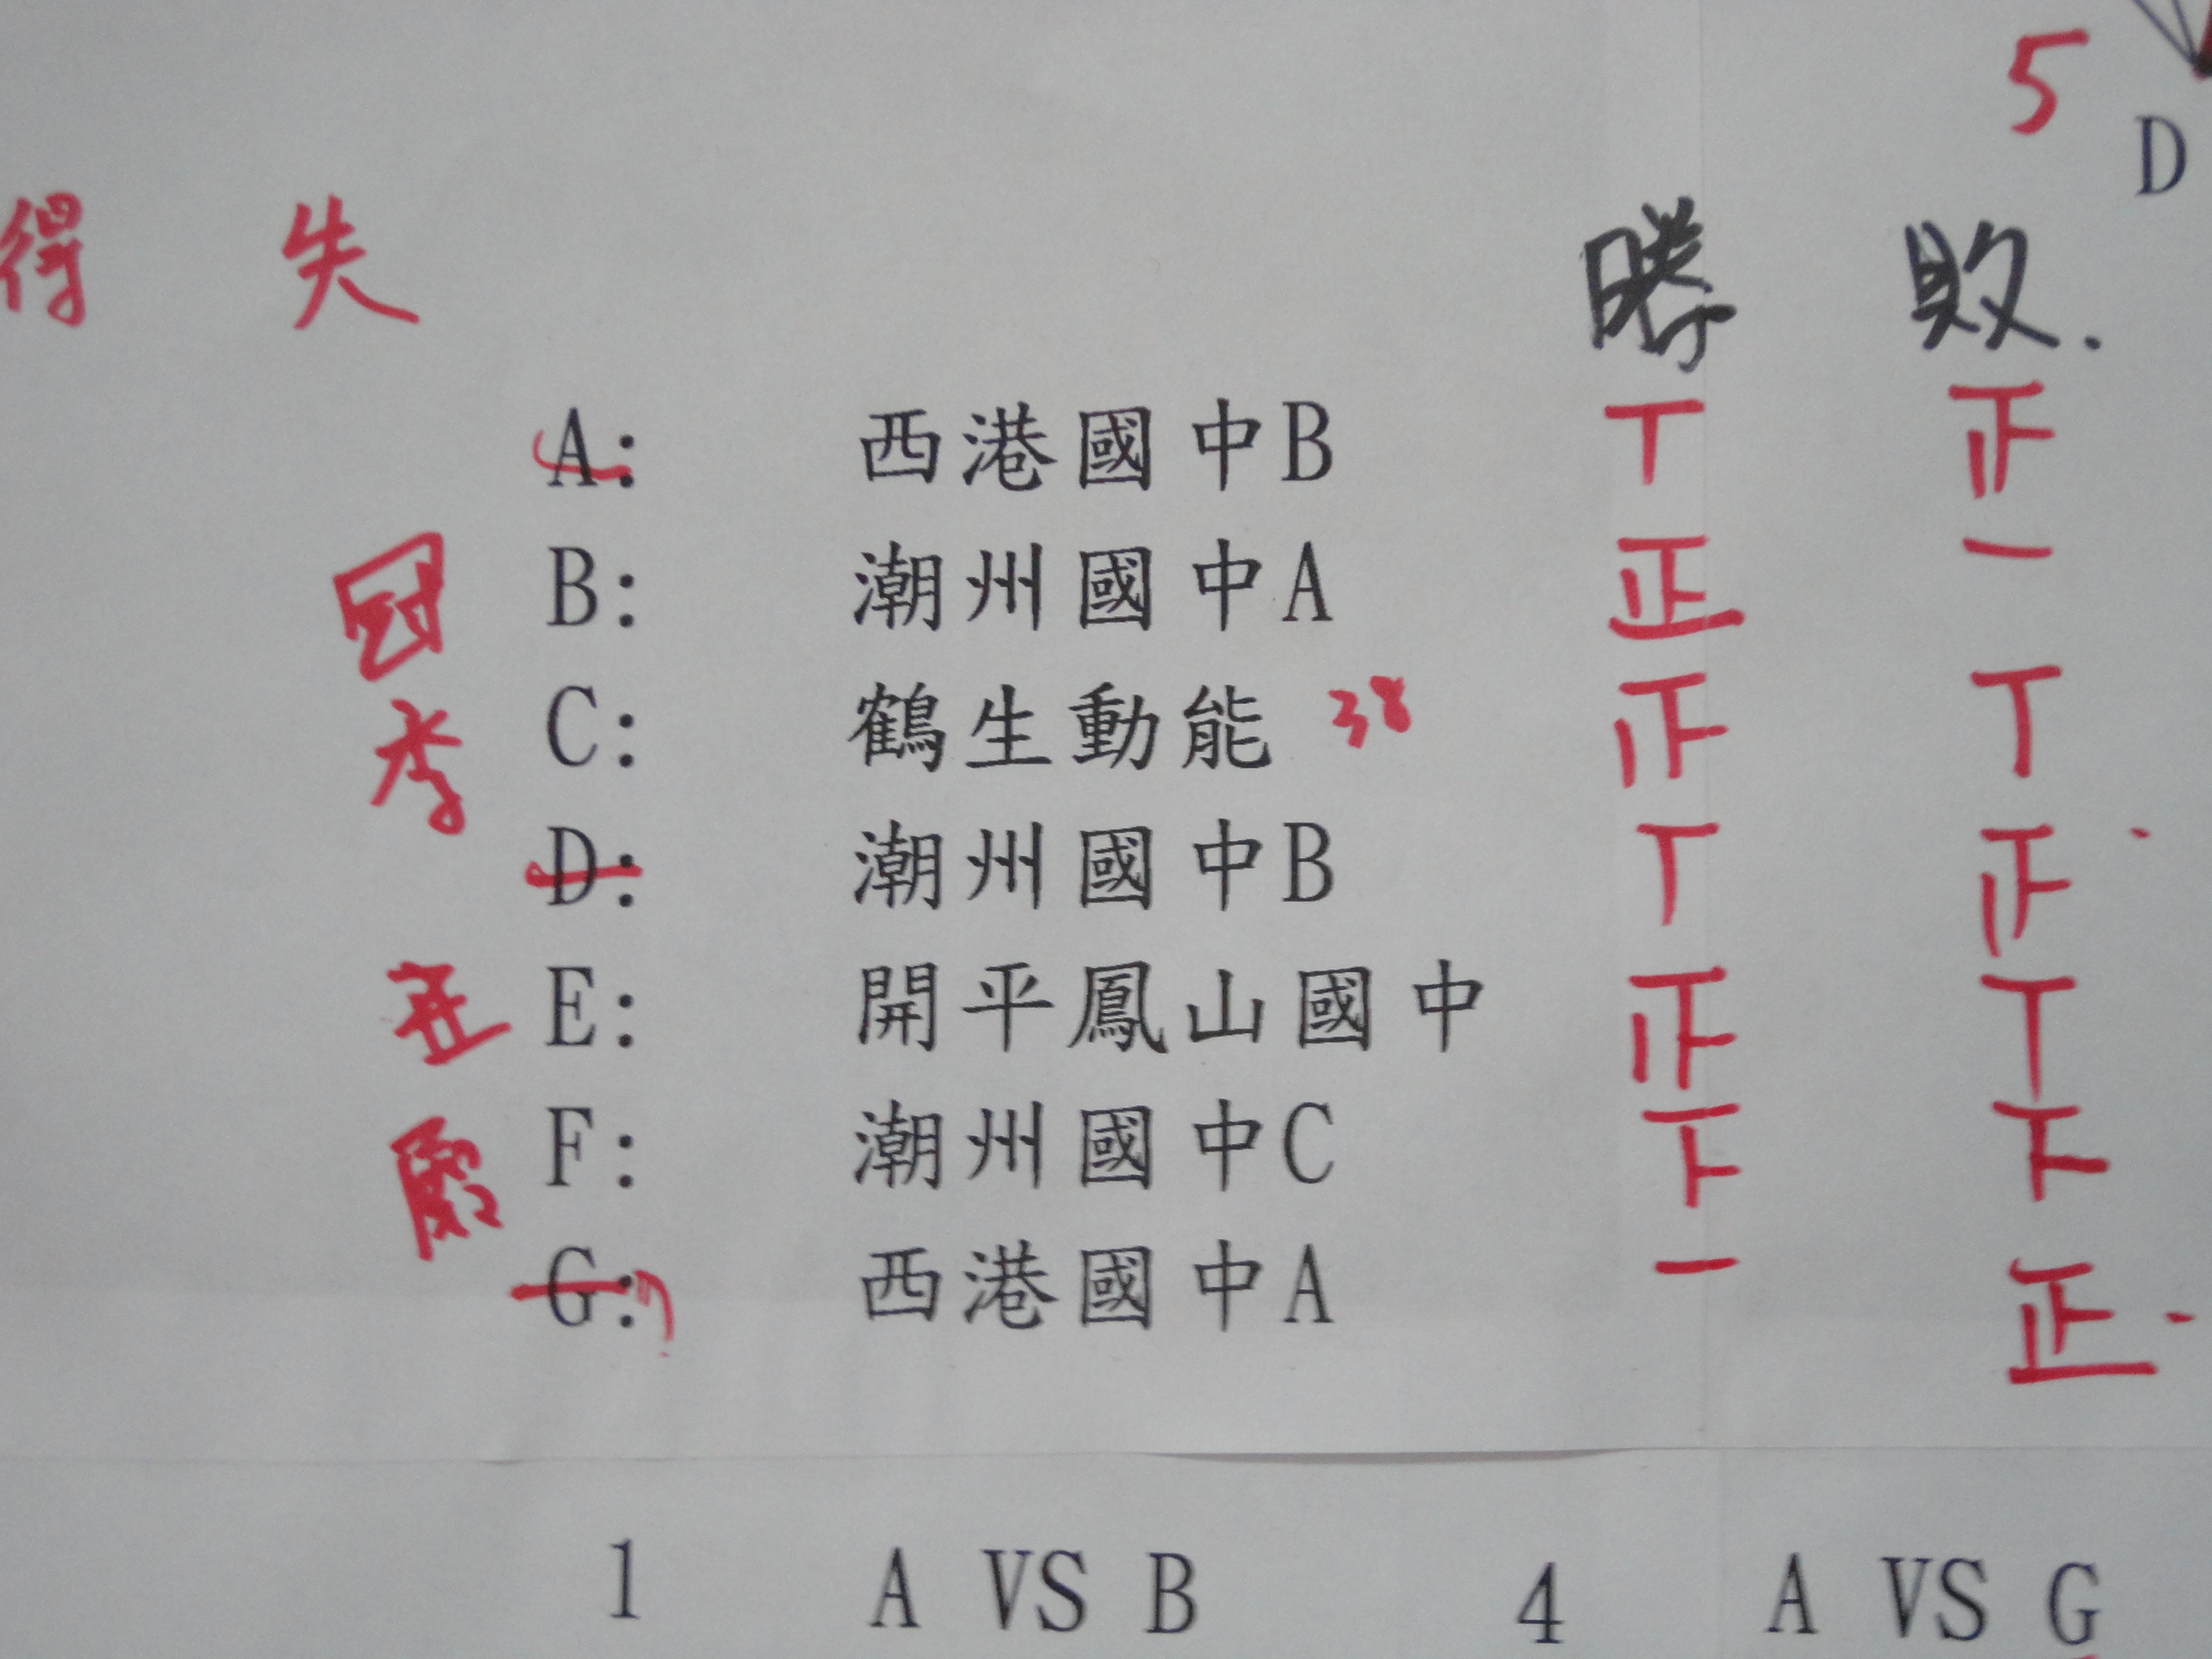 5
D
得 失 勝 敗.
A: 西港國中B 丅 正
冠 B: 潮州國中A 正 一
季 C: 鶴生動能 38 正 丅
D: 潮州國中B 丅 正
亞 E: 開平鳳山國中 正 丅
殿 F: 潮州國中C 下 下
G: 西港國中A 一 正
1 A VS B 4 A VS G